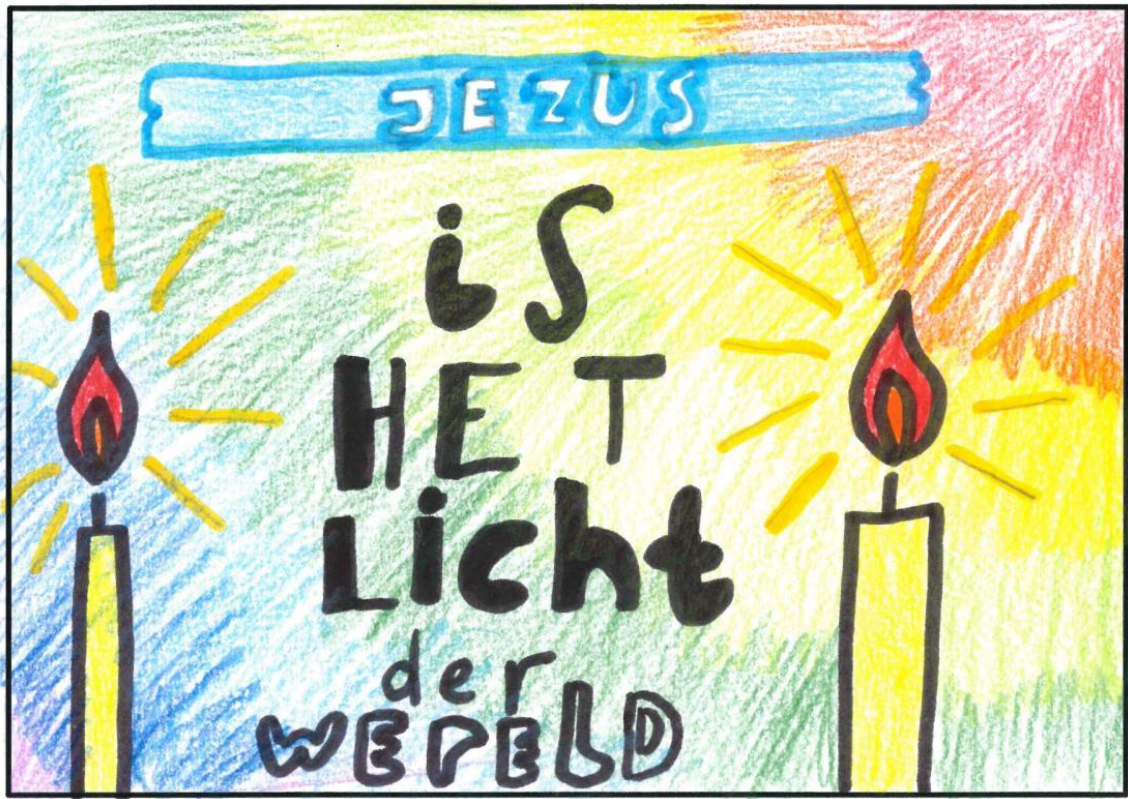 JEZUS
iS
HET
Licht
der
WERELD